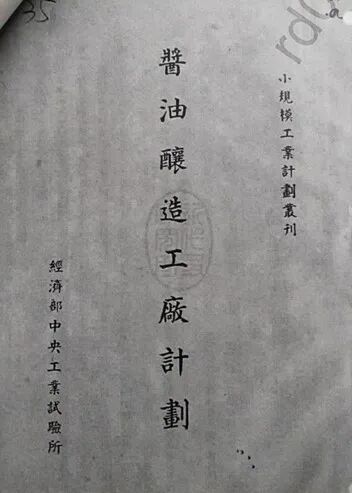 小規模工業計劃叢刊
醬油釀造工廠計劃
經濟部中央工業試驗所
35